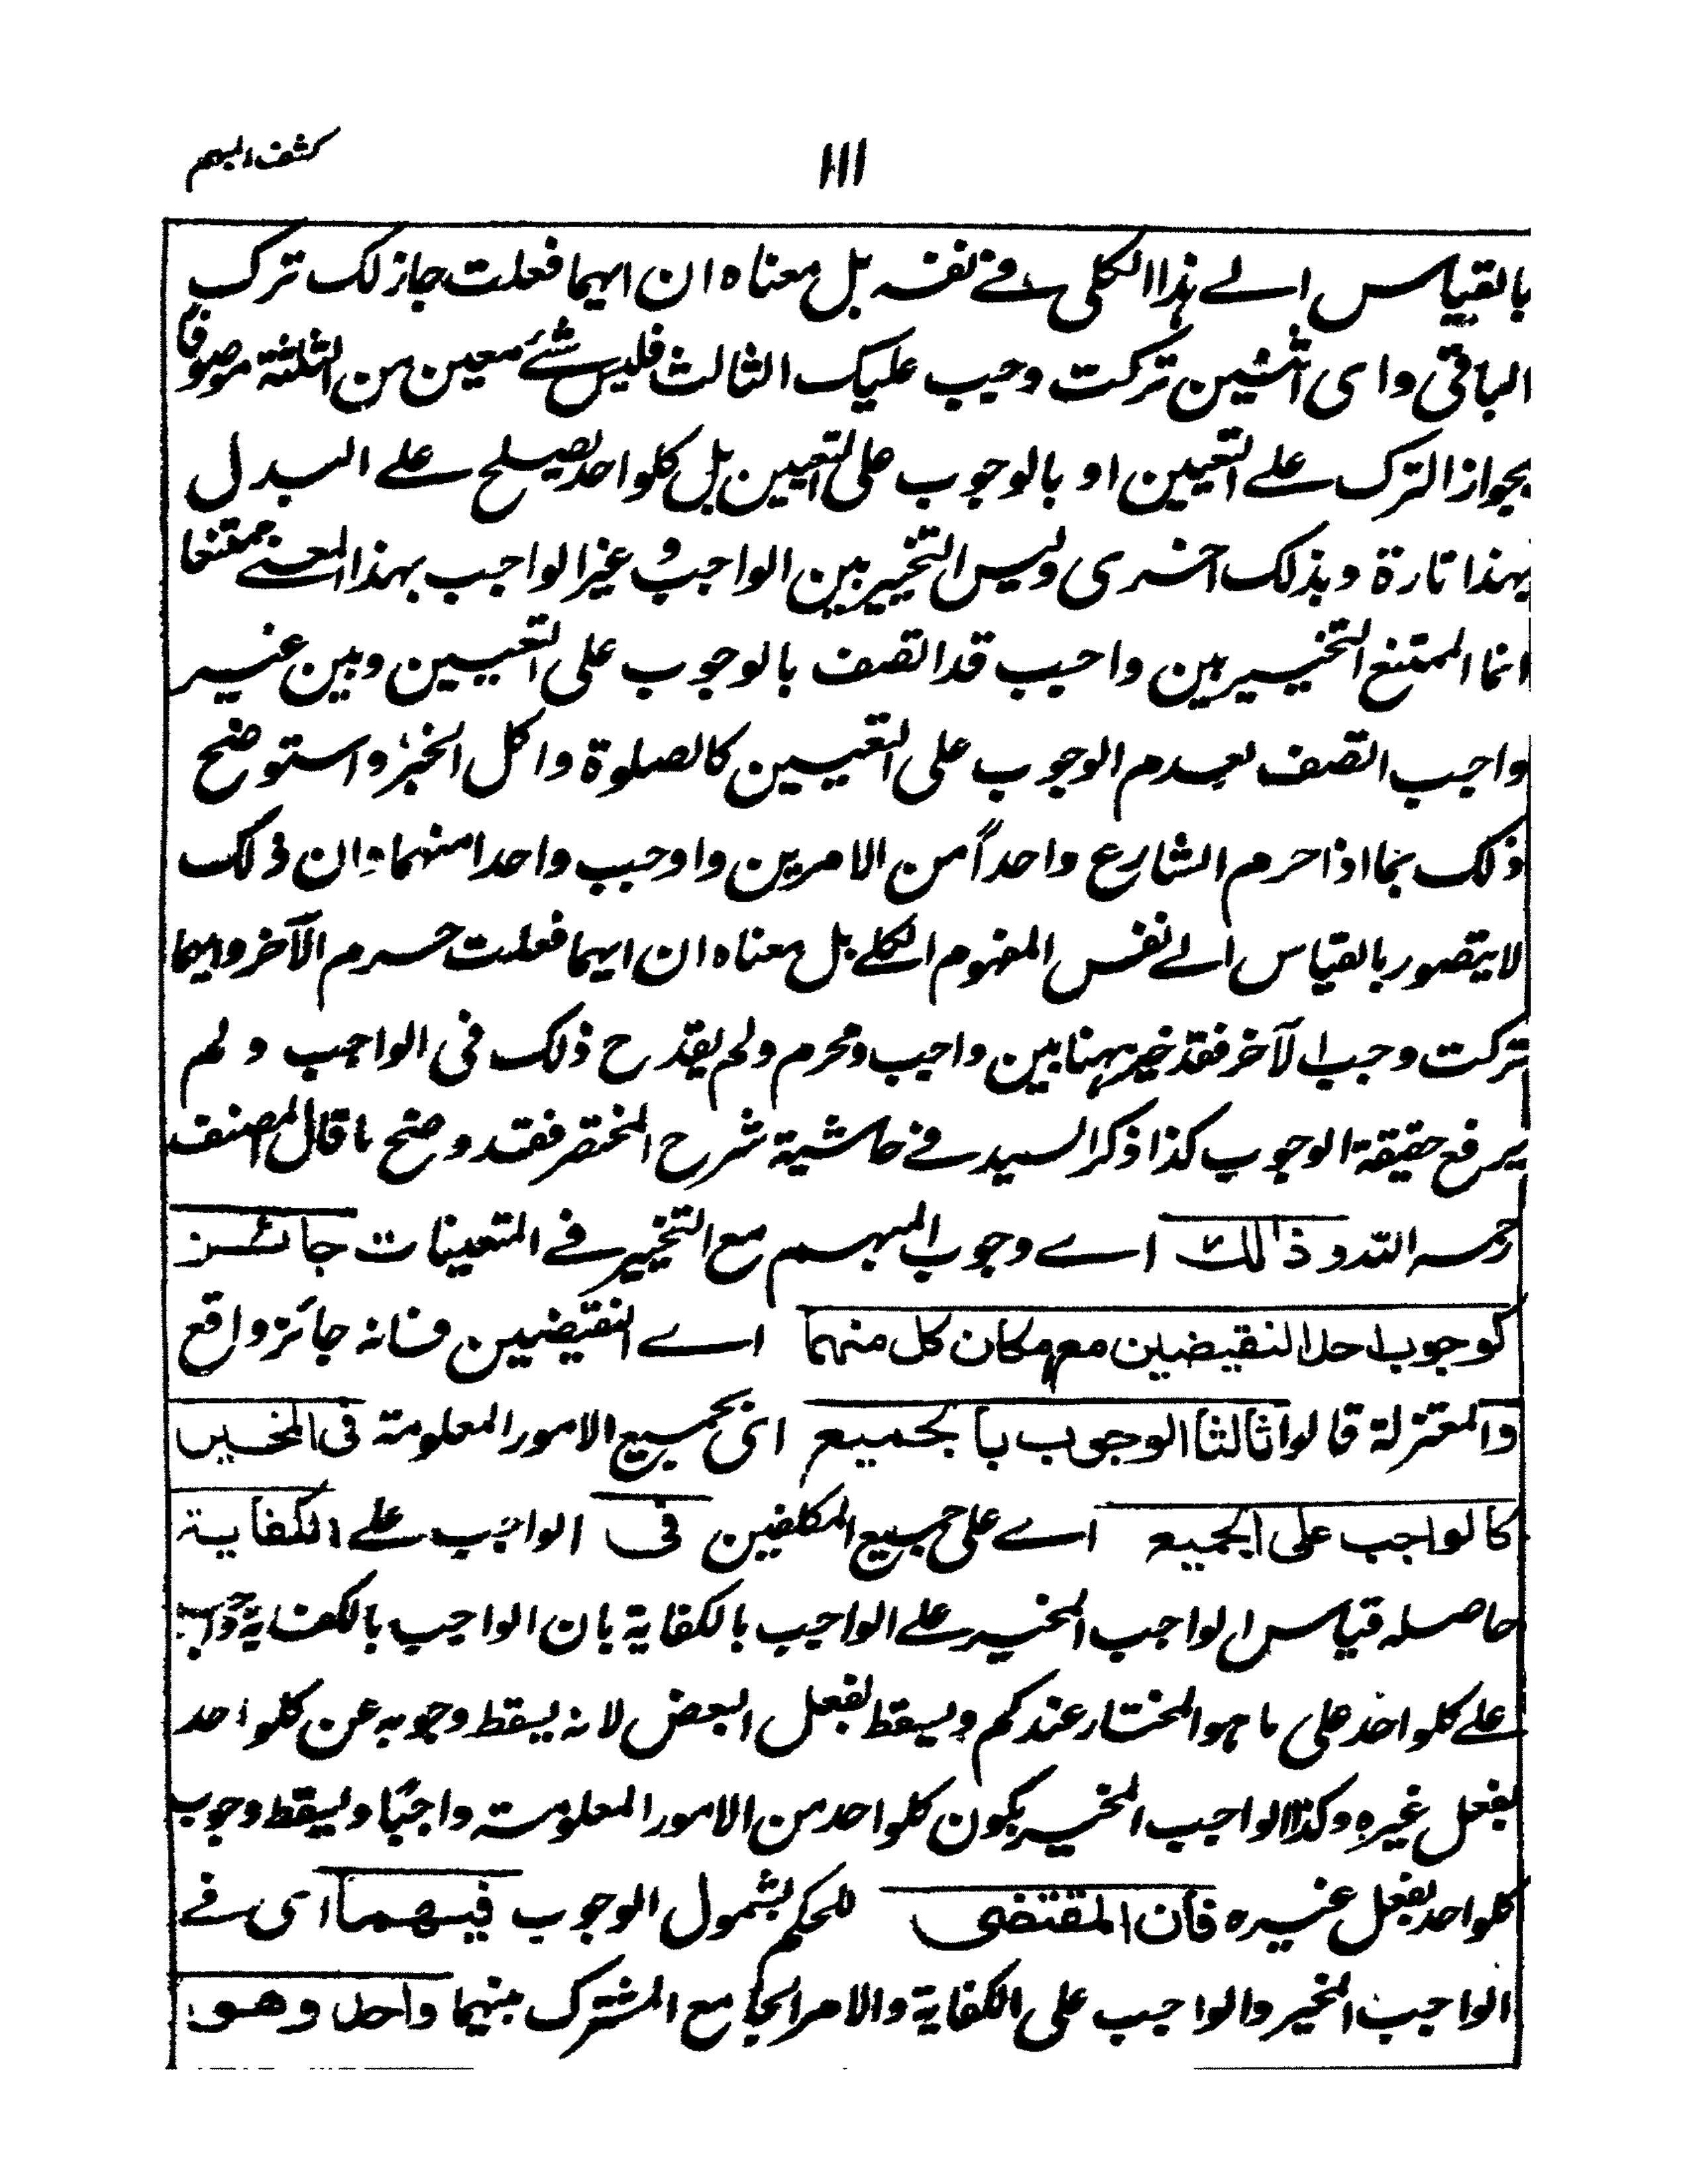 كشف المبهم
١١١
بالقياس الے هذا الكلی فے نفسه بل معناه ان ايهما فعلت جاز لك ترك
الباقی وای اثنين تركت وجب عليك الثالث فليس شئ معين من الثلثة موصوفا
بجواز الترك علے التعيين او بالوجوب علی التعيين بل كلواحد يصلح علے البدل
بهذا تارة وبذلك اخری وليس التخيير بين الواجب وغير الواجب بهذا المعنے ممتنعا
انما الممتنع التخيير بين واجب قد اتصف بالوجوب علی التعيين وبين غير
واجب اتصف بعدم الوجوب علی التعيين كالصلوة واكل الخبز واستوضح
ذلك بما اذا حرم الشارع واحداً من الامرين واوجب واحدا منهما فان ذلك
لا يتصور بالقياس الے نفس المفهوم الكلے بل معناه ان ايهما فعلت حرم الآخر وايهما
تركت وجب الآخر فقد خير ههنا بين واجب ومحرم ولم يقدح ذلك فی الواجب ولم
يرفع حقيقة الوجوب كذا ذكر السيد فے حاشية شرح المختصر فقد وضح ما قال المصنف
رحمه الله وذالك اے وجوب المبهم مع التخيير فے المتعينات جائز
كوجوب احد النقيضين مع امكان كل منهما اے النقيضين فانه جائز واقع
والمعتزلة قالوا ثالثا الوجوب بالجميع ای بجميع الامور المعلومة فی المخير
كالواجب علی الجميع اے علی جميع المكلفين فی الواجب علے الكفاية
حاصله قياس الواجب المخير علے الواجب بالكفاية بان الواجب بالكفاية واجب
علے كلواحد علی ما هو المختار عندكم ويسقط بفعل البعض لانه يسقط وجوبه عن كلواحد
بفعل غيره وكذا الواجب المخير يكون كلواحد من الامور المعلومة واجبًا ويسقط وجوب
كلواحد بفعل غيره فان المقتضی للحكم بشمول الوجوب فيهما ای فے
الواجب المخير والواجب علی الكفاية والامر الجامع المشترك بينهما واحد وهو